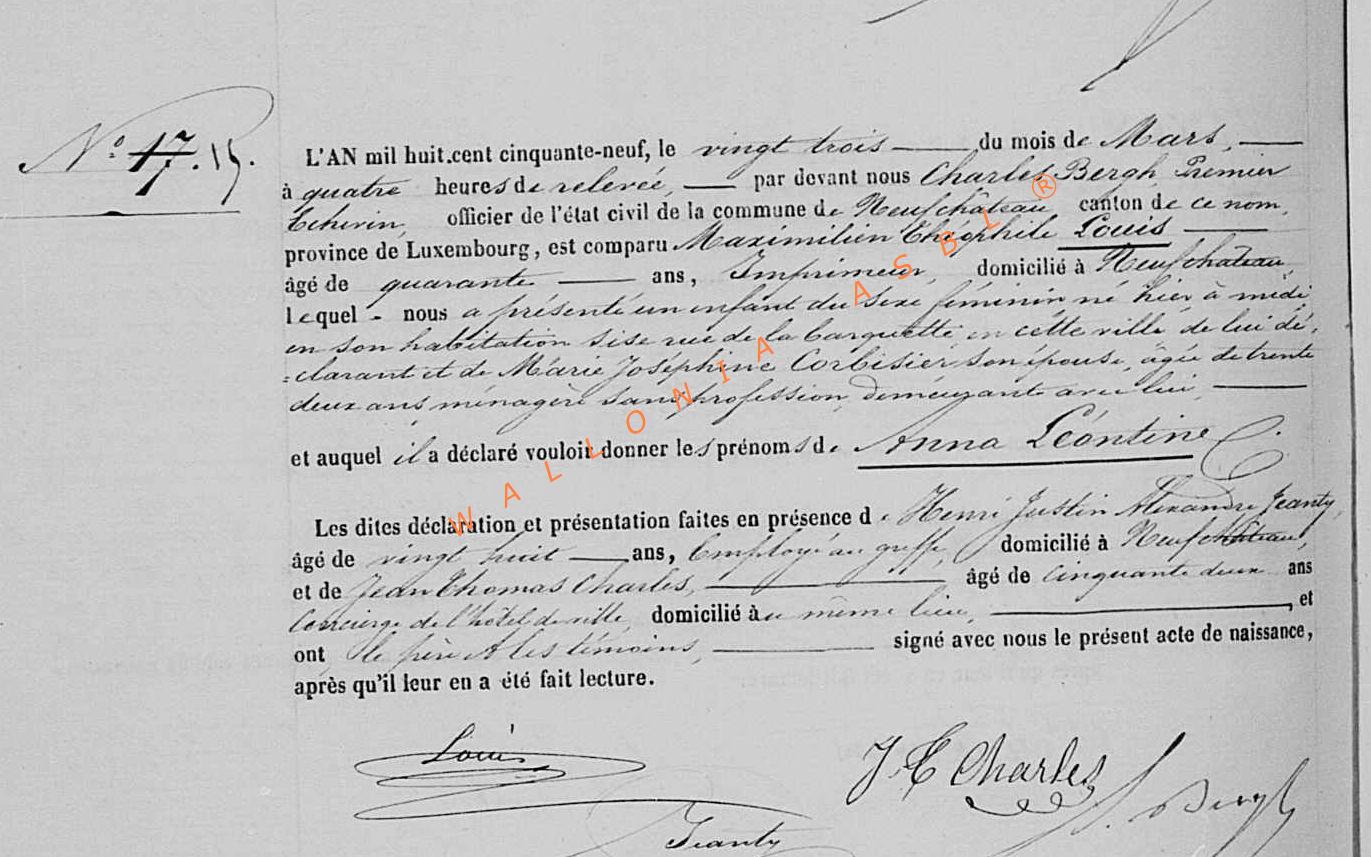 N° 17. 15.
L'AN mil huit cent cinquante-neuf, le vingt trois du mois de Mars,
à quatre heures de relevée, par devant nous Charles Bergh, Premier
Echevin, officier de l'état civil de la commune de Neufchâteau canton de ce nom,
province de Luxembourg, est comparu Maximilien Théophile Louis
âgé de quarante ans, Imprimeur, domicilié à Neufchâteau,
lequel nous a présenté un enfant du sexe féminin né hier à midi,
en son habitation sise rue de la en cette ville de lui dé-
=clarant et de Marie Joséphine Corbisier son épouse, âgée de trente
deux ans ménagère sans profession, demeurant avec lui,
et auquel il a déclaré vouloir donner les prénoms de Anna Léontine
Les dites déclaration et présentation faites en présence de Henri Justin Alexandre Jeanty,
âgé de vingt huit ans, Employé au greffe, domicilié à Neufchâteau,
et de Jean Thomas Charles, âgé de cinquante deux ans
Concierge de l'hôtel de ville, domicilié au même lieu, et
ont le père et les témoins, signé avec nous le présent acte de naissance,
après qu'il leur en a été fait lecture.
Louis
J. T. Charles
Bergh
Jeanty
WALLONIA ASBL ®